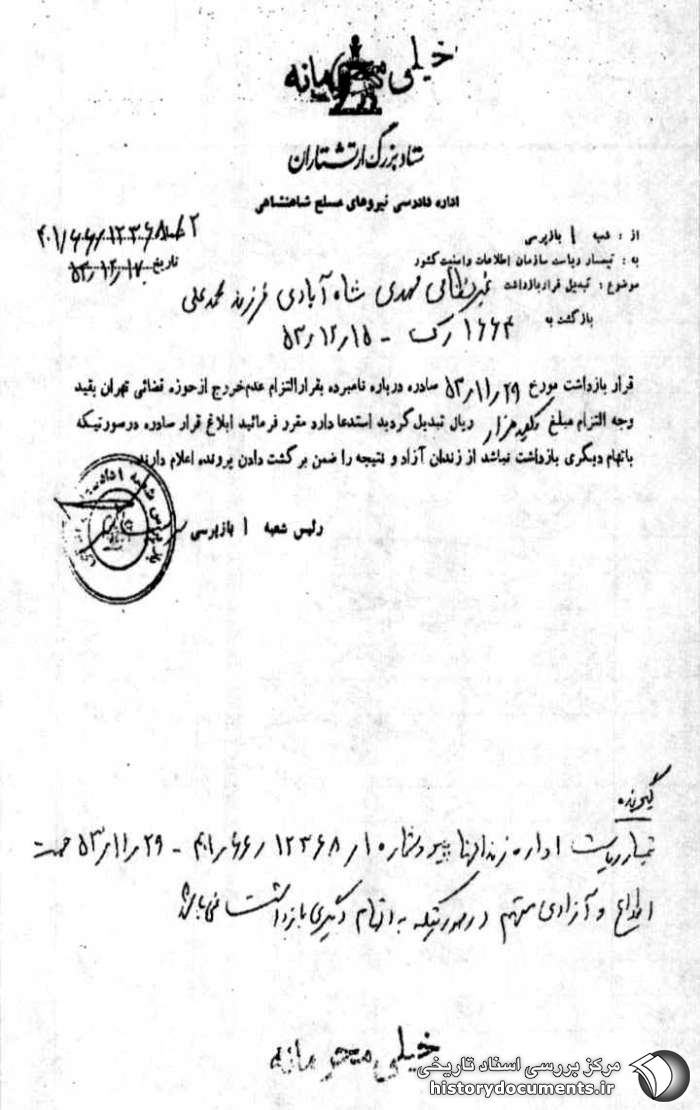 خیلی محرمانه
ستاد بزرگ ارتشتاران
اداره دادرسی نیروهای مسلح شاهنشاهی
از : شعبه ۱ بازپرسی
به : تیمسار ریاست سازمان اطلاعات و امنیت کشور
تاریخ ۵۳/۱۲/۱۷
موضوع : تبدیل قرار بازداشت غیرنظامی مهدی شاه آبادی فرزند محمدعلی
بازگشت به ۱۶۶۴ رک - ۵۳/۱۲/۱۵
قرار بازداشت مورخ ۵۳/۱۱/۲۹ صادره درباره نامبرده بقرار التزام عدم خروج از حوزه قضائی تهران بقید
وجه التزام مبلغ یکصد هزار ریال تبدیل گردید استدعا دارد مقرر فرمائید ابلاغ قرار صادره درصورتیکه
باتهام دیگری بازداشت نباشد از زندان آزاد و نتیجه را ضمن برگشت دادن پرونده اعلام دارند.
رئیس شعبه ۱ بازپرسی
گیرنده
تیمسار ریاست اداره زندانها پیرو شماره ۴۰۱/۶۶/۱۲۳۶۸/۱ - ۵۳/۱۱/۲۹ جهت
اطلاع و آزادی متهم درصورتیکه به اتهام دیگری بازداشت نمی‌باشد
خیلی محرمانه
مرکز بررسی اسناد تاریخی
historydocuments.ir